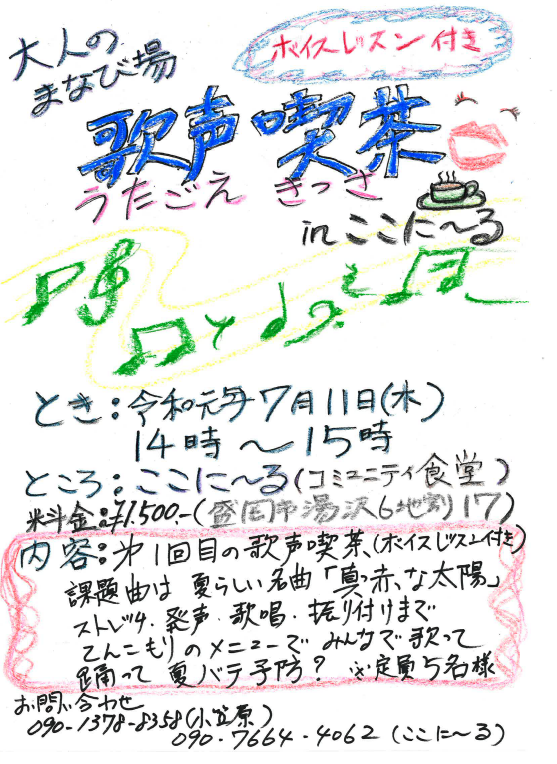 大人の
まなび場
ボイスレスン付き
歌声喫茶
うたごえ きっさ
in ここに～る
とき：令和元年7月11日(木)
14時～15時
ところ：ここに～る(コミュニティ食堂)
料金：¥1,500.-(盛岡市湯沢6地割17)
内容：第1回目の歌声喫茶、(ボイスレスン付き)
課題曲は 夏らしい名曲「真赤な太陽」
ストレッチ・発声・歌唱・振り付けまで
てんこもりのメニューで みんなで歌って
踊って 夏バテ予防？ ※定員5名様
お問い合わせ
090-1378-8358(小笠原)
090-7664-4062 (ここに～る)